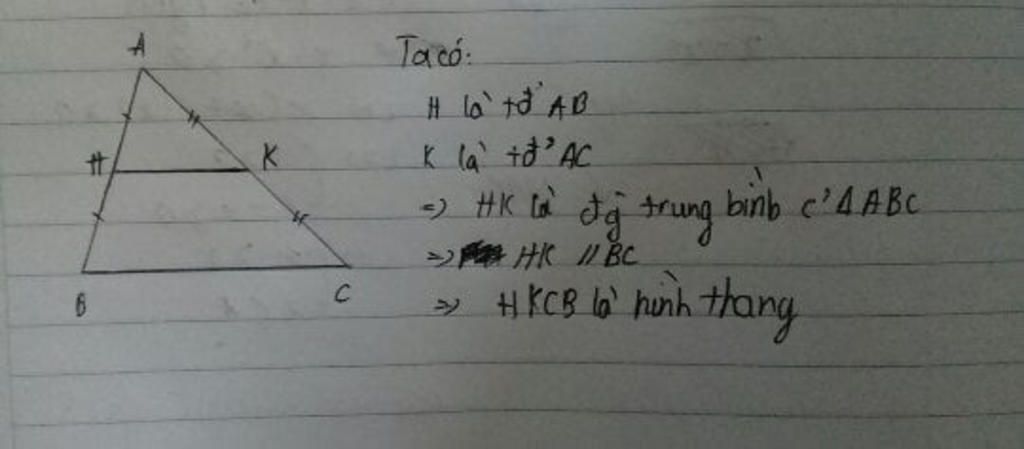 A
H
K
B
C
Ta có:
H là tđ' AB
K là tđ' AC
=) HK là đg trung bình c' Δ ABC
=) HK // BC
=) HKCB là hình thang